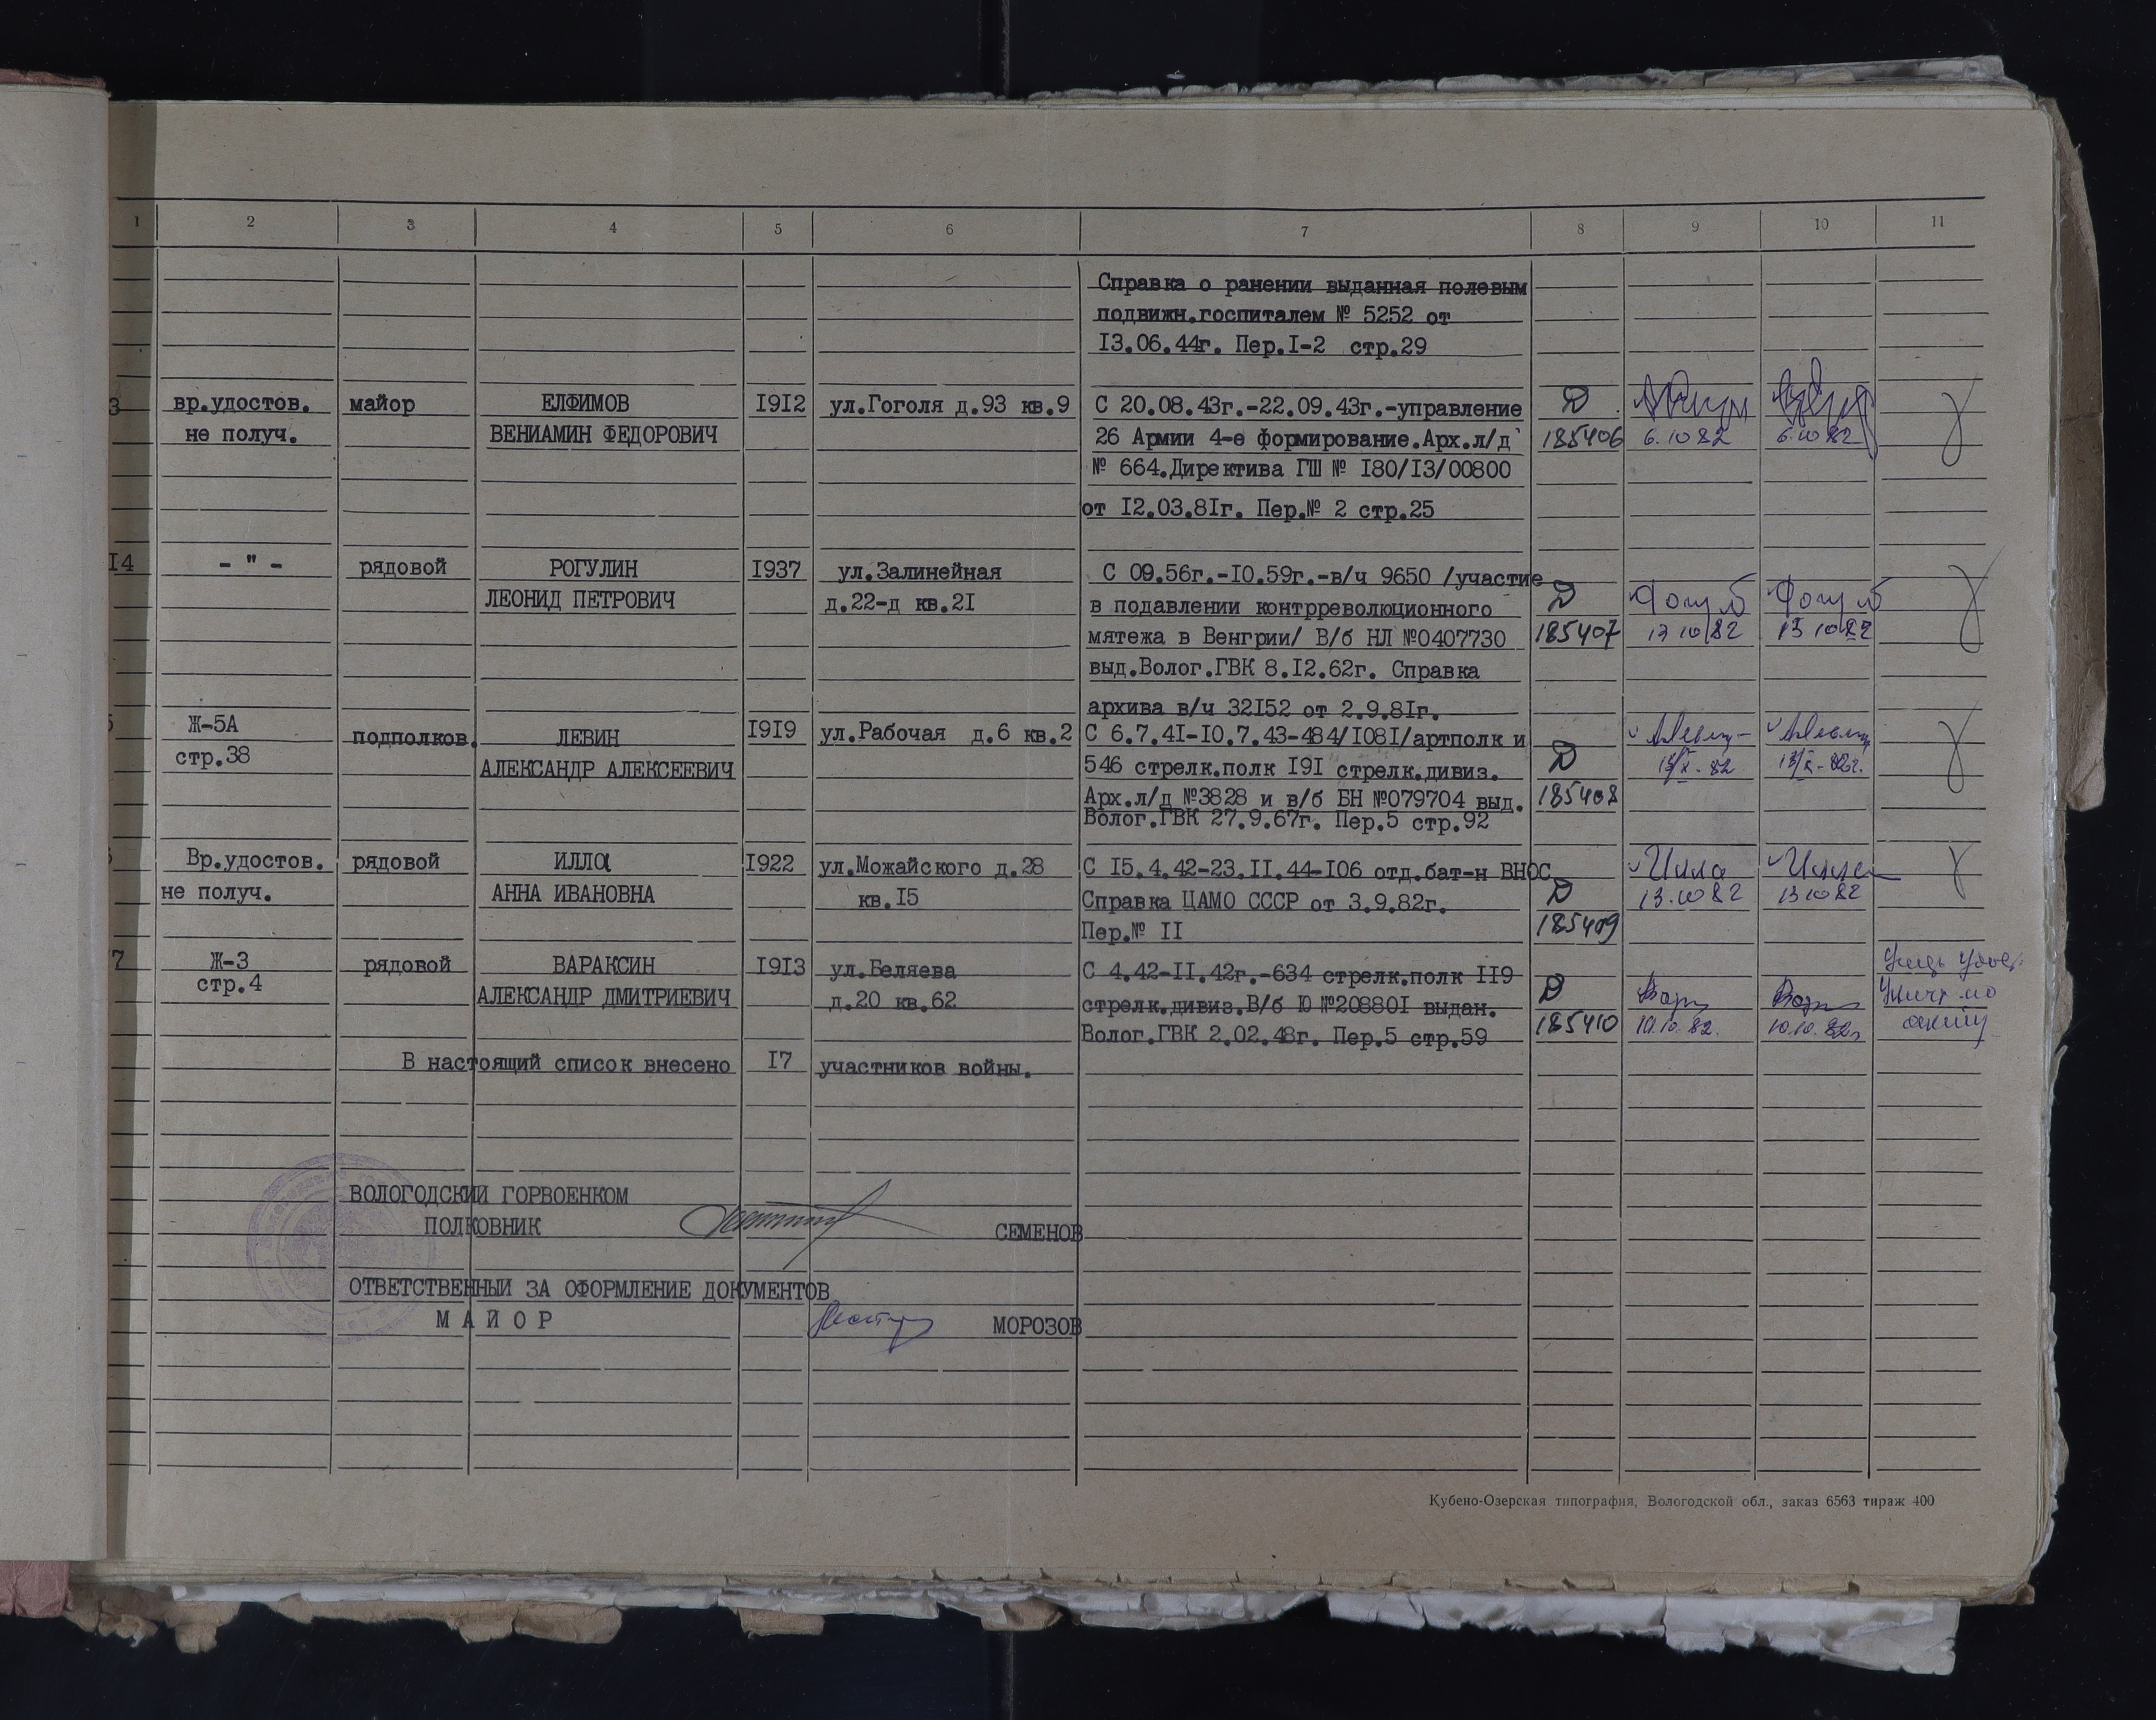 1 2 3 4 5 6 7 8 9 10 11
Справка о ранении выданная полевым
подвижн.госпиталем № 5252 от
I3.06.44г. Пер.I-2 стр.29
3 вр.удостов. майор ЕЛФИМОВ I9I2 ул.Гоголя д.93 кв.9 С 20.08.43г.-22.09.43г.-управление Д
не получ. ВЕНИАМИН ФЕДОРОВИЧ 26 Армии 4-е формирование.Арх.л/д 185406 6.10 82 6.10 82
№ 664.Директива ГШ № I80/I3/00800
от I2.03.8Iг. Пер.№ 2 стр.25
I4 - " - рядовой РОГУЛИН I937 ул.Залинейная С 09.56г.-I0.59г.-в/ч 9650 /участие
ЛЕОНИД ПЕТРОВИЧ д.22-д кв.2I в подавлении контрреволюционного Д
мятежа в Венгрии/ В/б НЛ №0407730 185407 13 10 82 13 10 82
выд.Волог.ГВК 8.I2.62г. Справка
архива в/ч 32I52 от 2.9.8Iг.
5 Ж-5А подполков. ЛЕВИН I9I9 ул.Рабочая д.6 кв.2 С 6.7.4I-I0.7.43-484/I08I/артполк и
стр.38 АЛЕКСАНДР АЛЕКСЕЕВИЧ 546 стрелк.полк I9I стрелк.дивиз. Д 13/X-82 13/X-82г.
Арх.л/д №3828 и в/б БН №079704 выд. 185408
Волог.ГВК 27.9.67г. Пер.5 стр.92
6 Вр.удостов. рядовой ИЛЛа I922 ул.Можайского д.28 С I5.4.42-23.II.44-I06 отд.бат-н ВНОС Илла
не получ. АННА ИВАНОВНА кв.I5 Справка ЦАМО СССР от 3.9.82г. Д 13.10 82 13 10 82
Пер.№ II 185409
7 Ж-3 рядовой ВАРАКСИН I9I3 ул.Беляева С 4.42-II.42г.-634 стрелк.полк II9
стр.4 АЛЕКСАНДР ДМИТРИЕВИЧ д.20 кв.62 стрелк.дивиз.В/б Ю №20880I выдан. Д
Волог.ГВК 2.02.48г. Пер.5 стр.59 185410 10.10.82. 10.10.82г
В настоящий список внесено I7 участников войны.
ВОЛОГОДСКИЙ ГОРВОЕНКОМ
ПОЛКОВНИК СЕМЕНОВ
ОТВЕТСТВЕННЫЙ ЗА ОФОРМЛЕНИЕ ДОКУМЕНТОВ
М А Й О Р МОРОЗОВ
Кубено-Озерская типография, Вологодской обл., заказ 6563 тираж 400